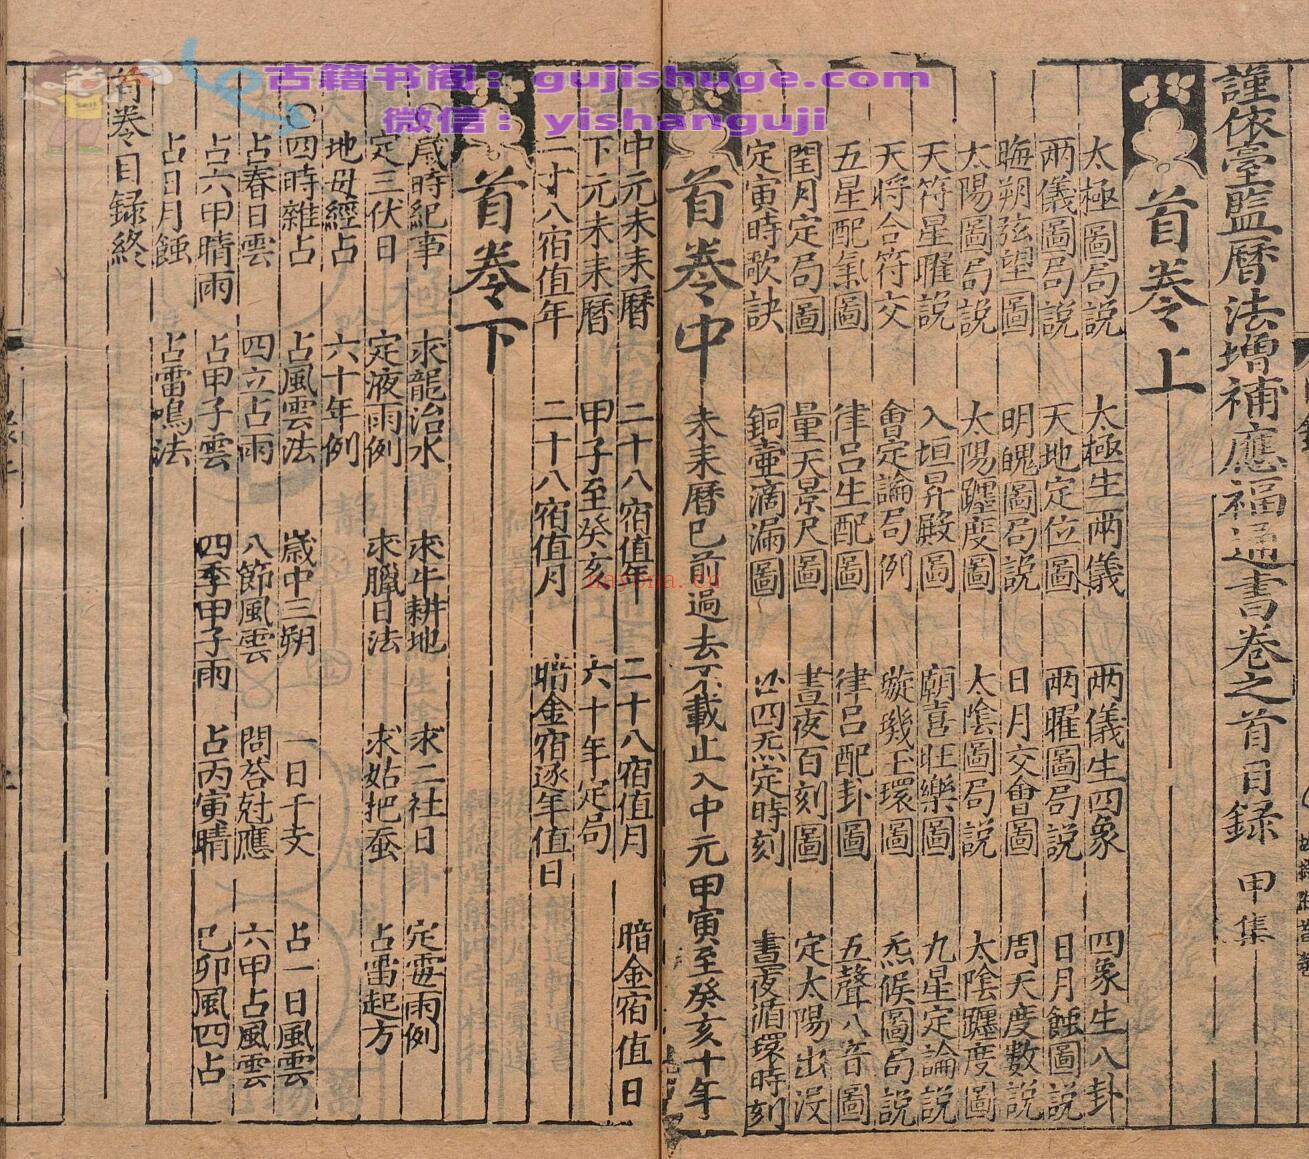 古籍书阁：gujishuge.com
微信：yishanguji
謹依臺監曆法增補應福通書卷之首目録 甲集
首卷上
太極圖局説 太極生兩儀 兩儀生四象 四象生八卦
兩儀圖局説 天地定位圖 兩曜圖局説 日月蝕圖説
晦朔弦望圖 明魄圖局説 日月交會圖 周天度數説
太陽圖局説 太陽躔度圖 太陰圖局説 太陰躔度圖
天符星曜説 入垣昇殿圖 廟喜旺樂圖 九星定論説
天將合符交 會定論局例 璇璣玉環圖 炁候圖局説
五星配氣圖 律吕生配圖 律吕配卦圖 五聲八音圖
閏月定局圖 量天景尺圖 晝夜百刻圖 定太陽出沒
定寅時歌訣 銅壷滴漏圖 四炁定時刻 晝夜循環時刻
首卷中 未来曆已前過去不載止入中元甲寅至癸亥十年
中元未来曆 二十八宿值年 二十八宿值月 暗金宿值日
下元未来曆 甲子至癸亥 六十年定局
二十八宿值年 二十八宿值月 暗金宿逐年值日
首卷下
○歳時紀事 求龍治水 求牛耕地 求二社日 定霉雨例
定三伏日 定液雨例 求臘日法 求姑把蚕 占雷起方
地母經占 六十年例
○四時雜占 占風雲法 歳中三朔 一日干支 占一日風雲
占春日雲 四立占雨 八節風雲 問荅尅應 六甲占風雲
占六甲晴雨 占甲子雲 四季甲子雨 占丙寅晴 己卯風四占
占日月蝕 占雷鳴法
首卷目録終